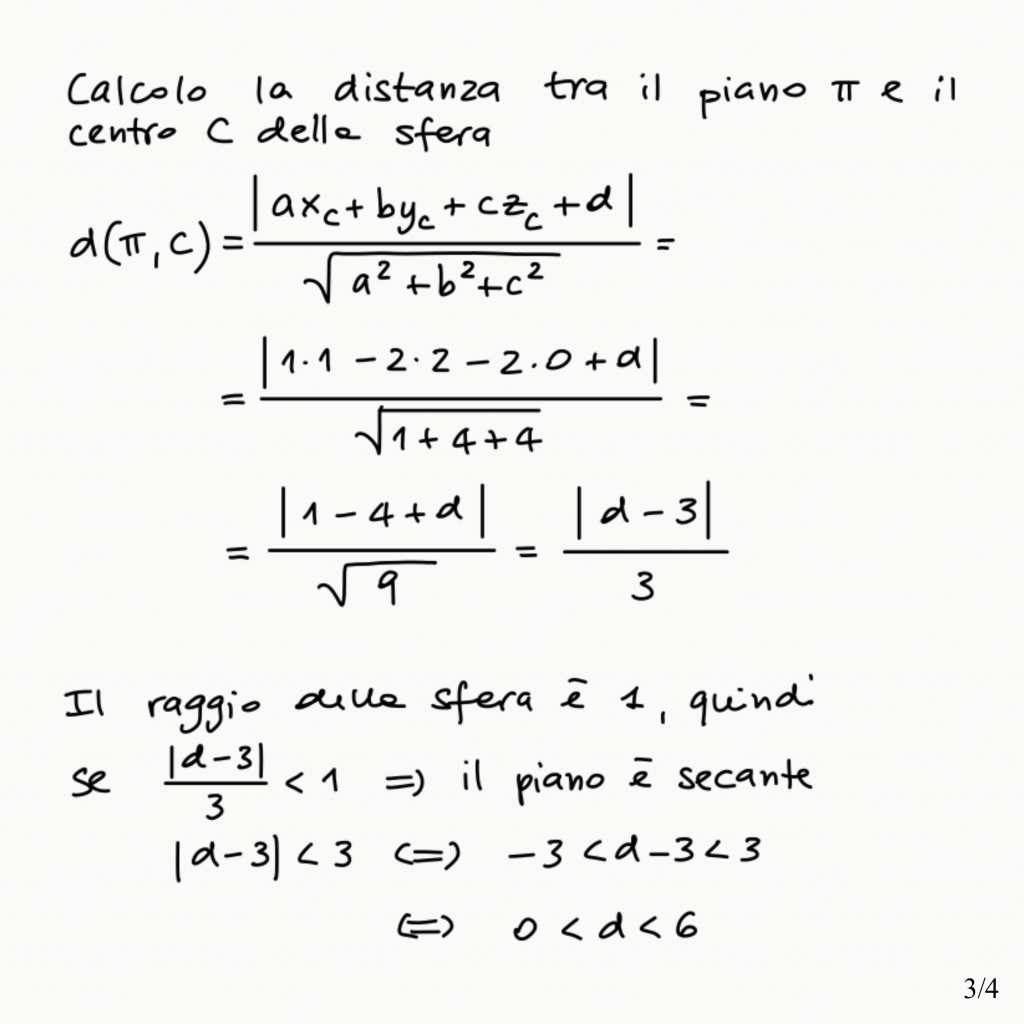 Calcolo la distanza tra il piano π e il
centro C della sfera
d(π,C) = |ax_c + by_c + cz_c + d| / √(a² + b² + c²) =
= |1·1 − 2·2 − 2·0 + d| / √(1 + 4 + 4) =
= |1 − 4 + d| / √9 = |d − 3| / 3
Il raggio della sfera è 1, quindi
se |d−3| / 3 < 1 => il piano è secante
|d−3| < 3 <=> −3 < d−3 < 3
<=> 0 < d < 6
3/4